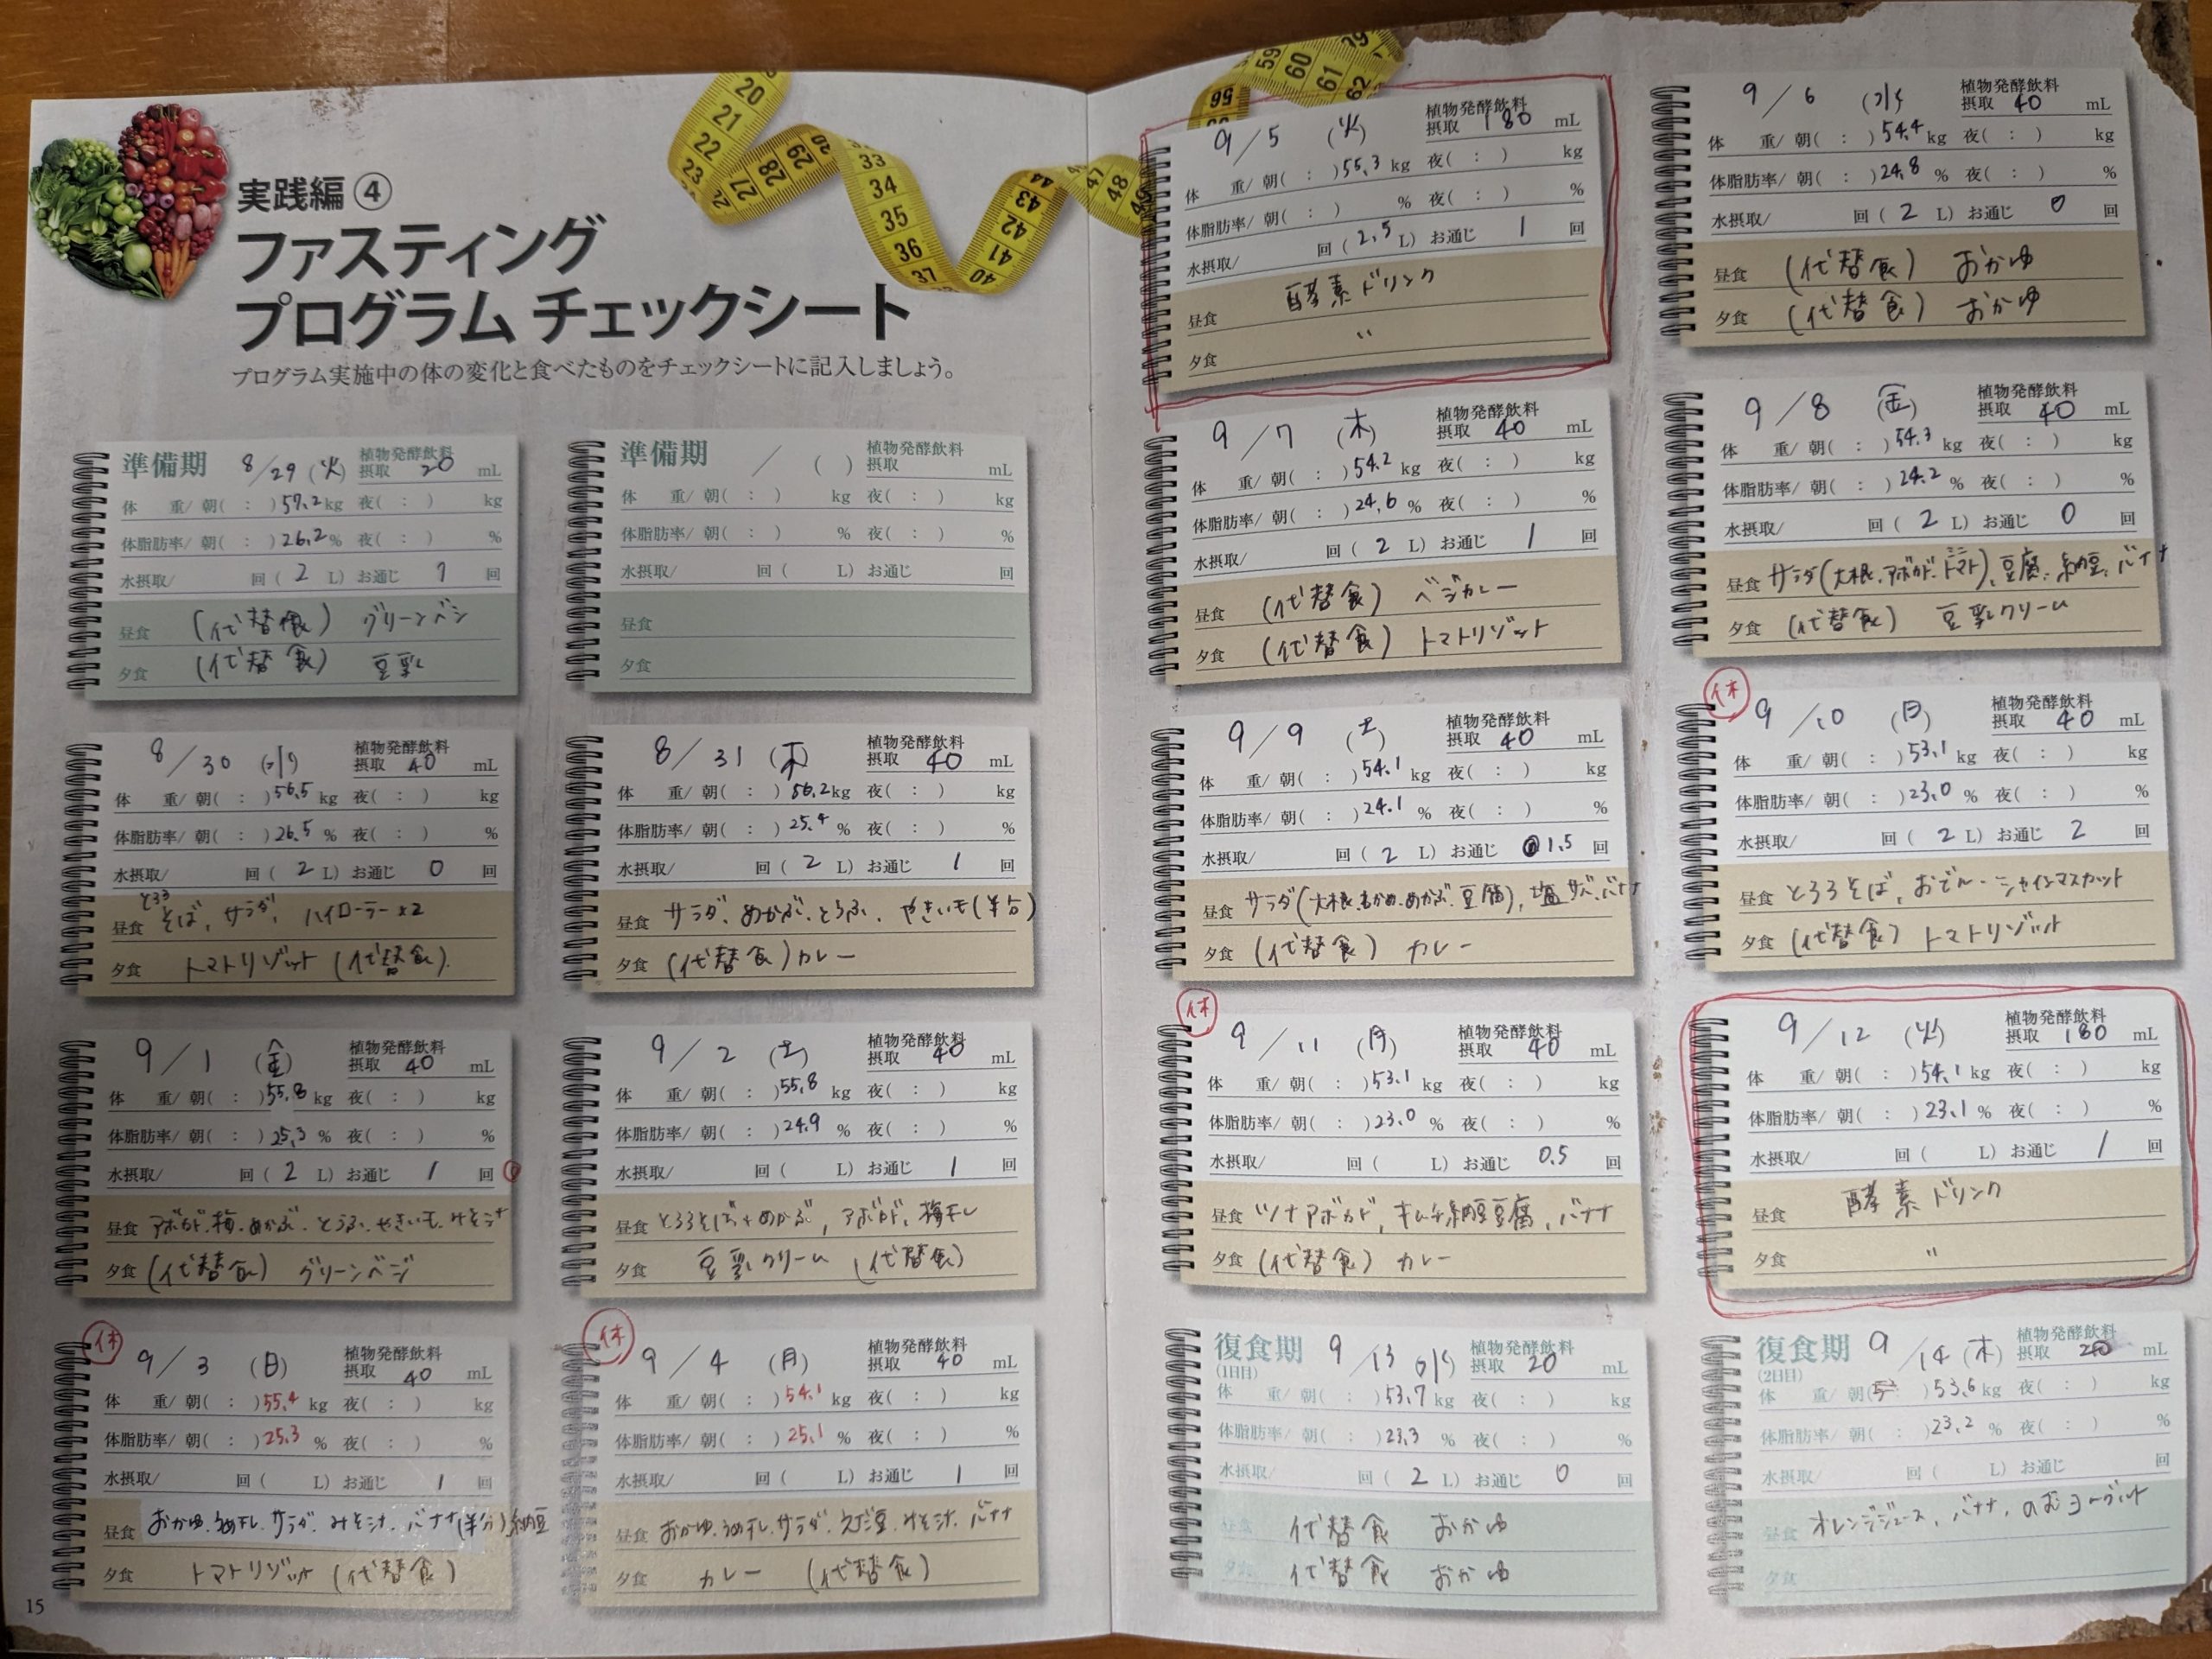 実践編④
ファスティング
プログラム チェックシート
プログラム実施中の体の変化と食べたものをチェックシートに記入しましょう。
準備期 8/29(火) 植物発酵飲料
摂取 20 mL
体 重/朝( : )57.2kg 夜( : ) kg
体脂肪率/朝( : )26.2% 夜( : ) %
水摂取/ 回( 2 L) お通じ 1 回
昼食 (代替食) グリーンベジ
夕食 (代替食) 豆乳
準備期 / ( ) 植物発酵飲料
摂取 mL
体 重/朝( : ) kg 夜( : ) kg
体脂肪率/朝( : ) % 夜( : ) %
水摂取/ 回( L) お通じ 回
昼食
夕食
8/30(水) 植物発酵飲料
摂取 40 mL
体 重/朝( : )56.5kg 夜( : ) kg
体脂肪率/朝( : )26.5% 夜( : ) %
水摂取/ 回( 2 L) お通じ 0 回
昼食 とろろそば, サラダ, ハイローラー×2
夕食 トマトリゾット (代替食).
8/31(木) 植物発酵飲料
摂取 40 mL
体 重/朝( : )56.2kg 夜( : ) kg
体脂肪率/朝( : )25.4% 夜( : ) %
水摂取/ 回( 2 L) お通じ 1 回
昼食 サラダ、めかぶ、とうふ、やきいも(半分)
夕食 (代替食)カレー
9/1(金) 植物発酵飲料
摂取 40 mL
体 重/朝( : )55.8kg 夜( : ) kg
体脂肪率/朝( : )25.3% 夜( : ) %
水摂取/ 回( 2 L) お通じ 1 回
昼食 アボカド、梅、めかぶ、とうふ、やきいも、みそ汁
夕食 (代替食) グリーンベジ
9/2(土) 植物発酵飲料
摂取 40 mL
体 重/朝( : )55.8kg 夜( : ) kg
体脂肪率/朝( : )24.9% 夜( : ) %
水摂取/ 回( L) お通じ 1 回
昼食 とろろそば+めかぶ, アボカド、梅干し
夕食 豆乳クリーム (代替食)
休
9/3(日) 植物発酵飲料
摂取 40 mL
体 重/朝( : )55.4kg 夜( : ) kg
体脂肪率/朝( : )25.3% 夜( : ) %
水摂取/ 回( L) お通じ 1 回
昼食 おかゆ、うめ干し、サラダ、みそ汁、バナナ(半分)納豆
夕食 トマトリゾット (代替食)
休
9/4(月) 植物発酵飲料
摂取 40 mL
体 重/朝( : )54.1kg 夜( : ) kg
体脂肪率/朝( : )25.1% 夜( : ) %
水摂取/ 回( L) お通じ 1 回
昼食 おかゆ、うめ干し、サラダ、えだ豆、みそ汁、バナナ
夕食 カレー (代替食)
15
9/5(火) 植物発酵飲料
摂取 180 mL
体 重/朝( : )55.3kg 夜( : ) kg
体脂肪率/朝( : ) % 夜( : ) %
水摂取/ 回( 2.5 L) お通じ 1 回
昼食 酵素ドリンク
夕食 〃
9/6(水) 植物発酵飲料
摂取 40 mL
体 重/朝( : )54.4kg 夜( : ) kg
体脂肪率/朝( : )24.8% 夜( : ) %
水摂取/ 回( 2 L) お通じ 0 回
昼食 (代替食) おかゆ
夕食 (代替食) おかゆ
9/7(木) 植物発酵飲料
摂取 40 mL
体 重/朝( : )54.2kg 夜( : ) kg
体脂肪率/朝( : )24.6% 夜( : ) %
水摂取/ 回( 2 L) お通じ 1 回
昼食 (代替食) ベジカレー
夕食 (代替食) トマトリゾット
9/8(金) 植物発酵飲料
摂取 40 mL
体 重/朝( : )54.3kg 夜( : ) kg
体脂肪率/朝( : )24.2% 夜( : ) %
水摂取/ 回( 2 L) お通じ 0 回
昼食 サラダ(大根、アボカド、ミニトマト)、豆腐、納豆、バナナ
夕食 (代替食) 豆乳クリーム
9/9(土) 植物発酵飲料
摂取 40 mL
体 重/朝( : )54.1kg 夜( : ) kg
体脂肪率/朝( : )24.1% 夜( : ) %
水摂取/ 回( 2 L) お通じ 1.5 回
昼食 サラダ(大根、わかめ、めかぶ、豆腐), 塩サバ、バナナ
夕食 (代替食) カレー
休
9/10(日) 植物発酵飲料
摂取 40 mL
体 重/朝( : )53.1kg 夜( : ) kg
体脂肪率/朝( : )23.0% 夜( : ) %
水摂取/ 回( 2 L) お通じ 2 回
昼食 とろろそば、おでん、シャインマスカット
夕食 (代替食) トマトリゾット
休
9/11(月) 植物発酵飲料
摂取 40 mL
体 重/朝( : )53.1kg 夜( : ) kg
体脂肪率/朝( : )23.0% 夜( : ) %
水摂取/ 回( L) お通じ 0.5 回
昼食 ツナアボカド, キムチ納豆豆腐、バナナ
夕食 (代替食) カレー
9/12(火) 植物発酵飲料
摂取 180 mL
体 重/朝( : )54.1kg 夜( : ) kg
体脂肪率/朝( : )23.1% 夜( : ) %
水摂取/ 回( L) お通じ 1 回
昼食 酵素ドリンク
夕食 〃
復食期 9/13(水) 植物発酵飲料
(1日目) 摂取 20 mL
体 重/朝( : )53.7kg 夜( : ) kg
体脂肪率/朝( : )23.3% 夜( : ) %
水摂取/ 回( 2 L) お通じ 0 回
昼食 代替食 おかゆ
夕食 代替食 おかゆ
復食期 9/14(木) 植物発酵飲料
(2日目) 摂取 20 mL
体 重/朝( : )53.6kg 夜( : ) kg
体脂肪率/朝( : )23.2% 夜( : ) %
水摂取/ 回( L) お通じ 回
昼食 オレンジジュース、バナナ、のむヨーグルト
夕食